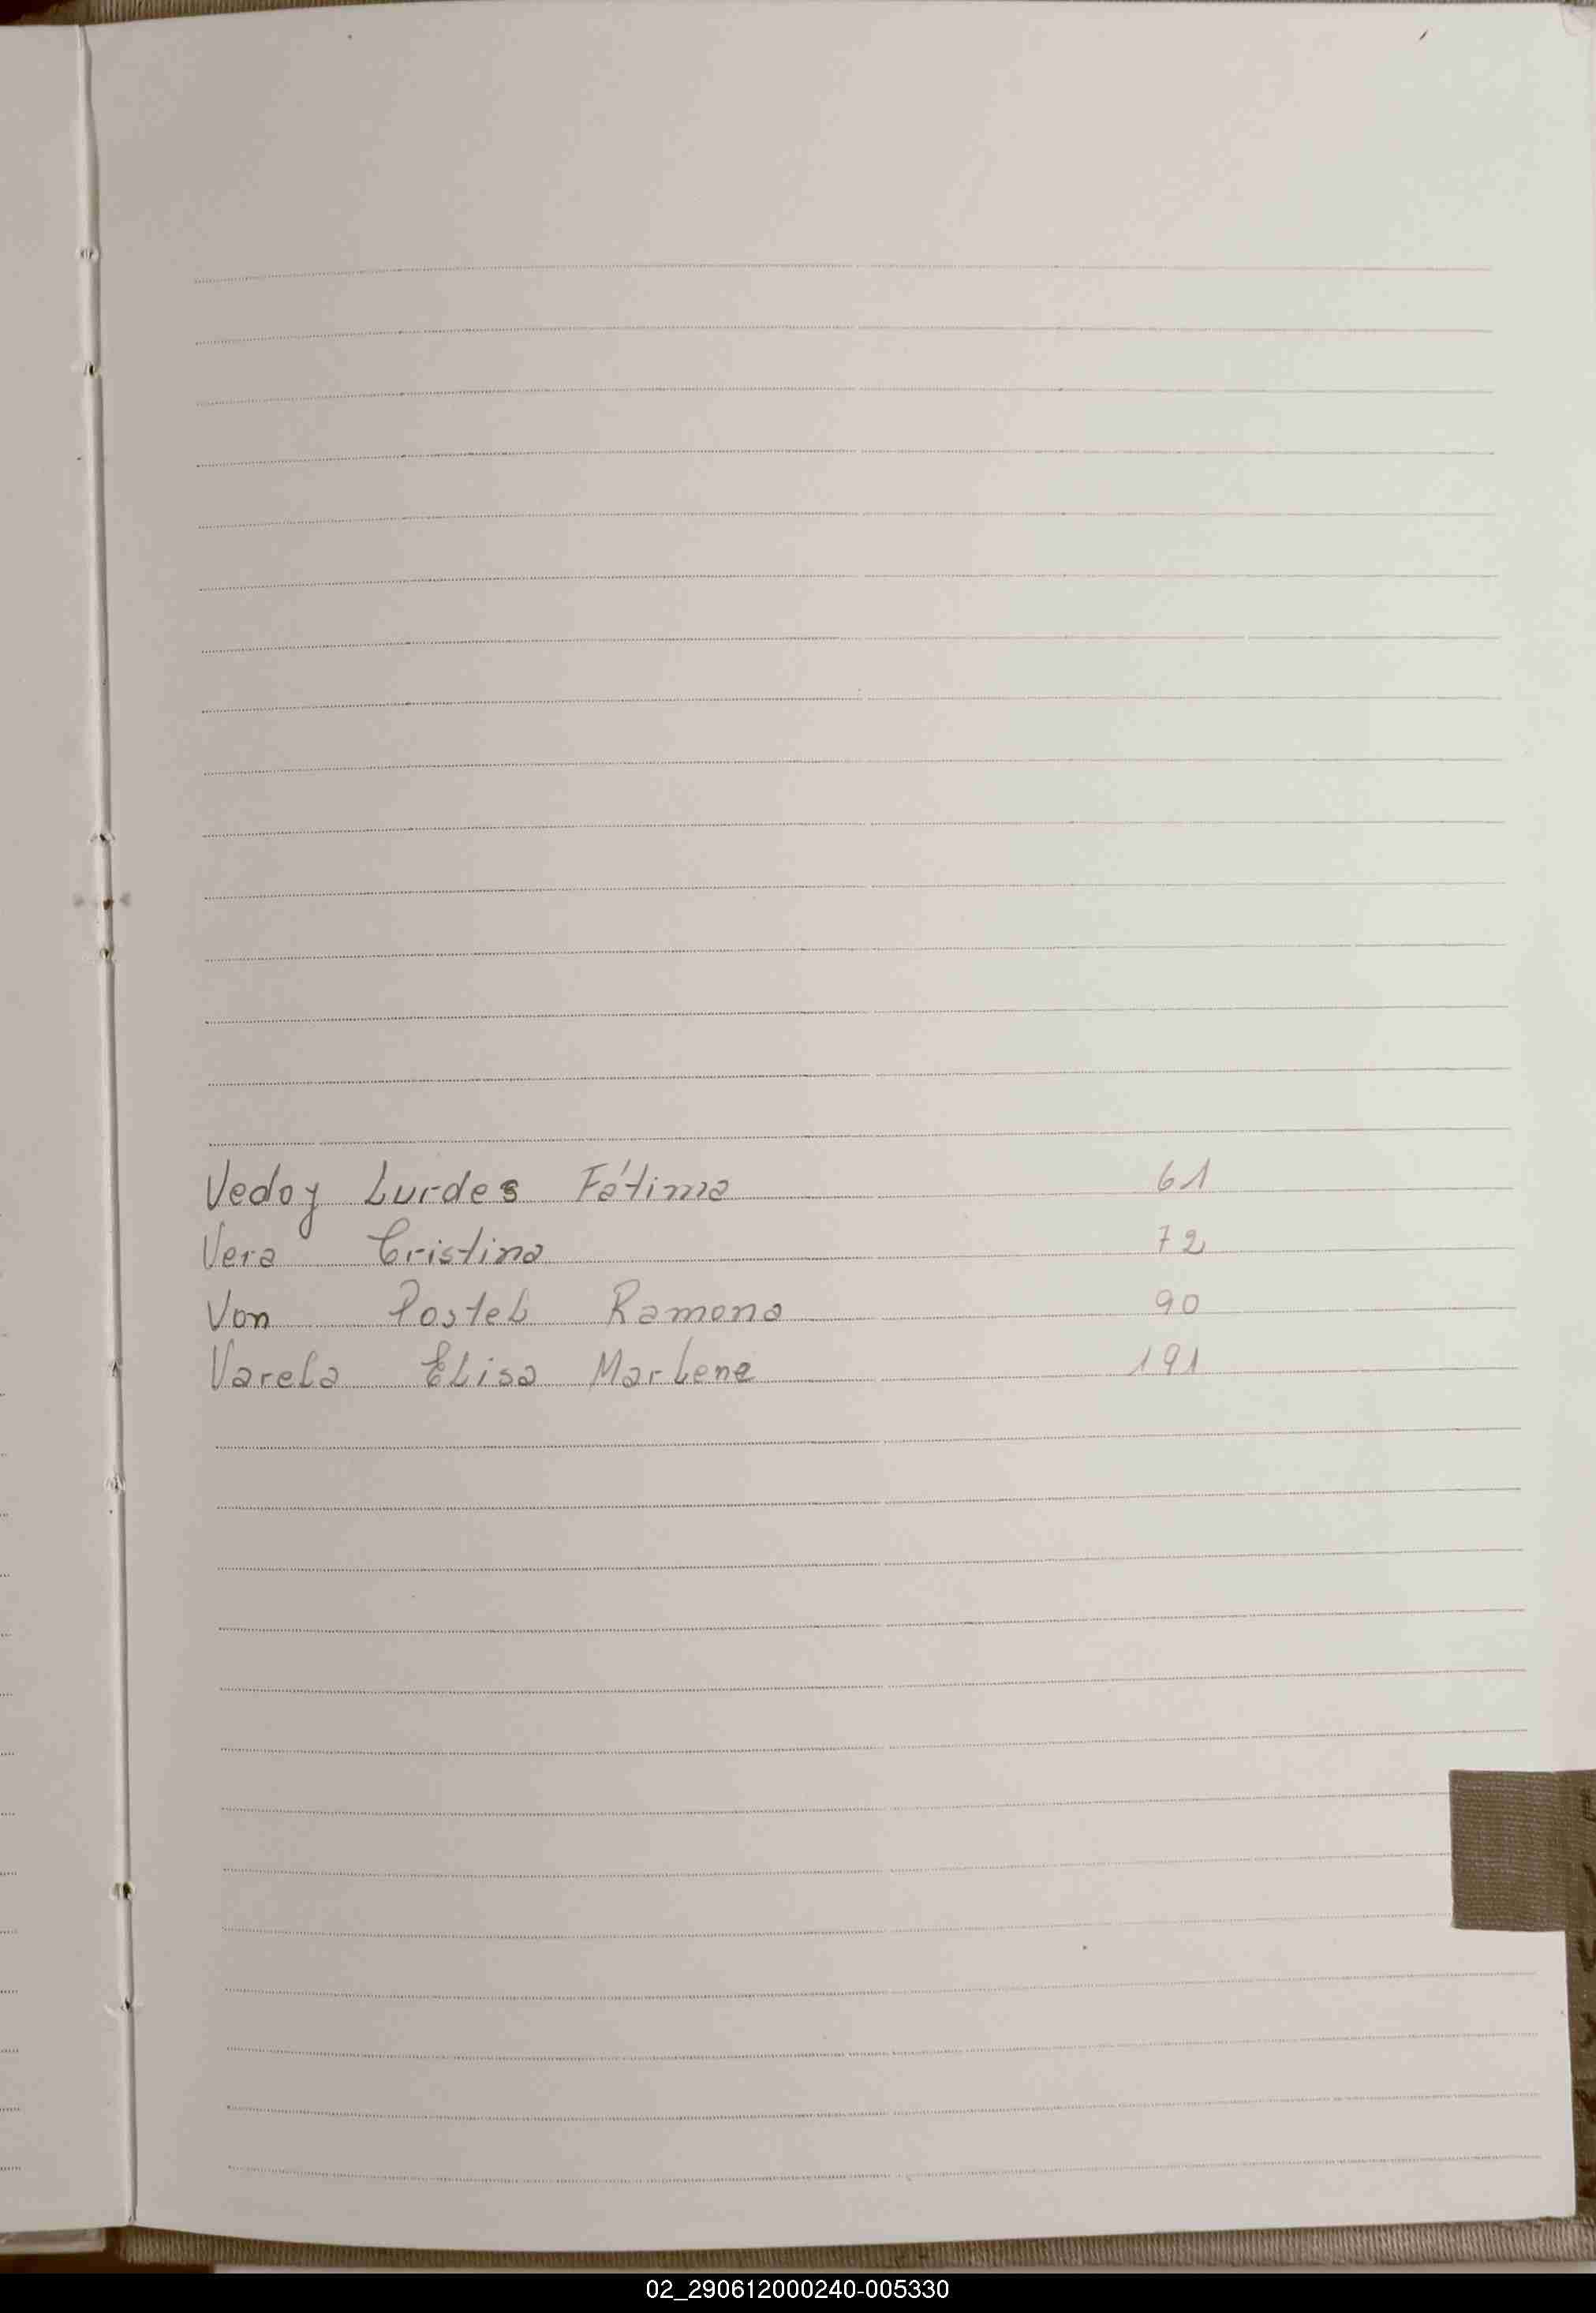 Vedoy Lurdes Fátima 61
Vera Cristina 72
Von Posteb Ramona 90
Varela Elisa Marlene 191
02_290612000240-005330